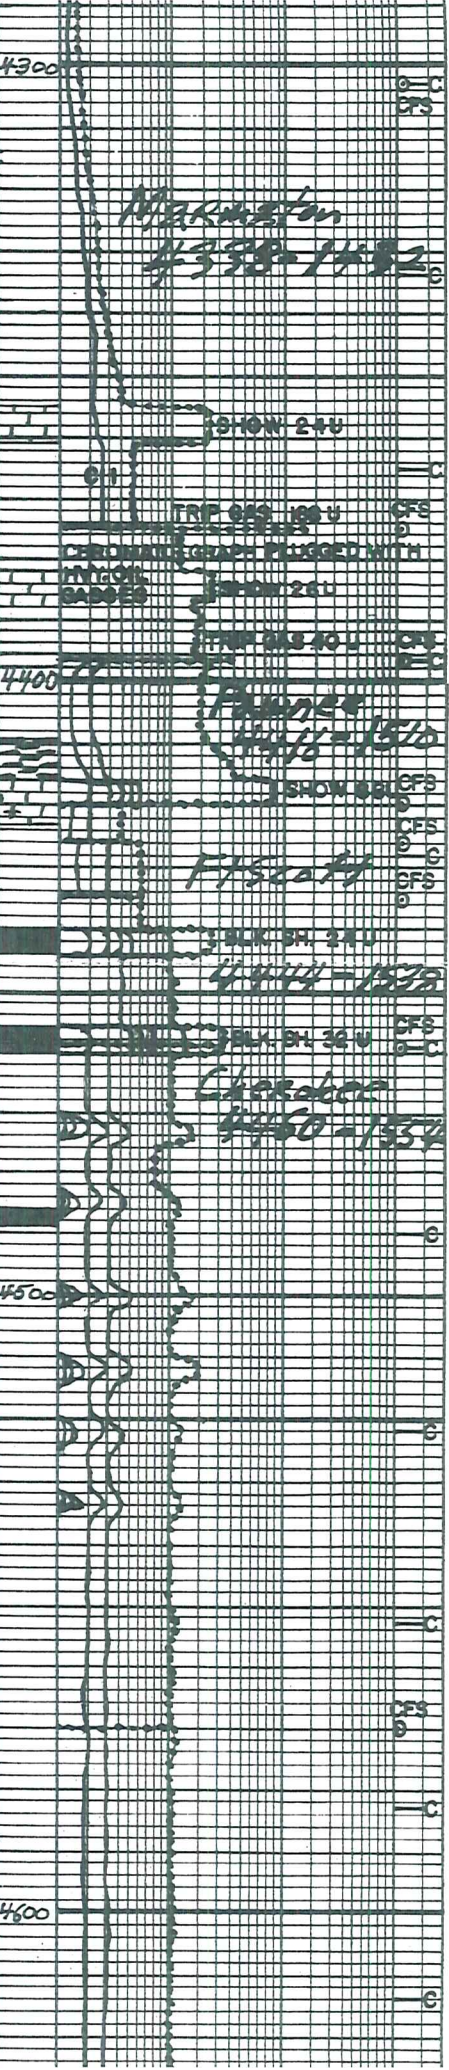 4300
C
CFS
Marmaton
4338-1432
C
SHOW 24U
C-1
C
TRIP GAS 168 U CFS
CHROMATOGRAPH PLUGGED WITH
HVY. OIL
GASSES
SHOW 26U
TRIP GAS 40 U CFS
C
4400
Pawnee
4416-1510
SHOW 68U CFS
CFS
C
Ft Scott
CFS
BLK. SH. 24 U
4444-1538
BLK. SH. 32 U CFS
C
Cherokee
4460-1554
C
4500
C
C
CFS
C
4600
C